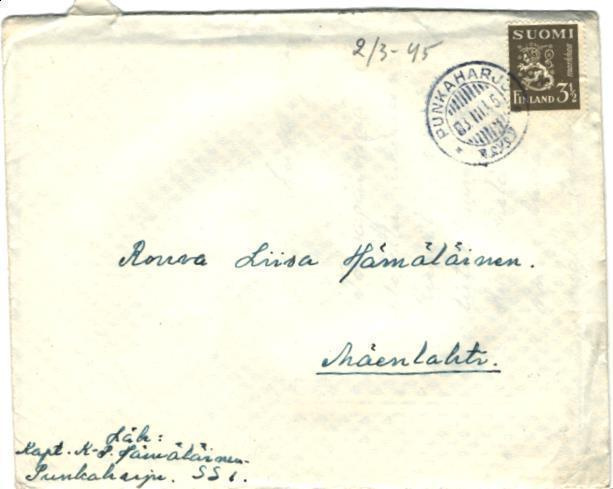 2/3-45
SUOMI
markkaa
FINLAND 3½
PUNKAHARJU
03 III
Rouva Liisa Hämäläinen.
Mäenlahti.
Läh:
Kapt. K-P. Hämäläinen.
Punkaharju. SS 1.